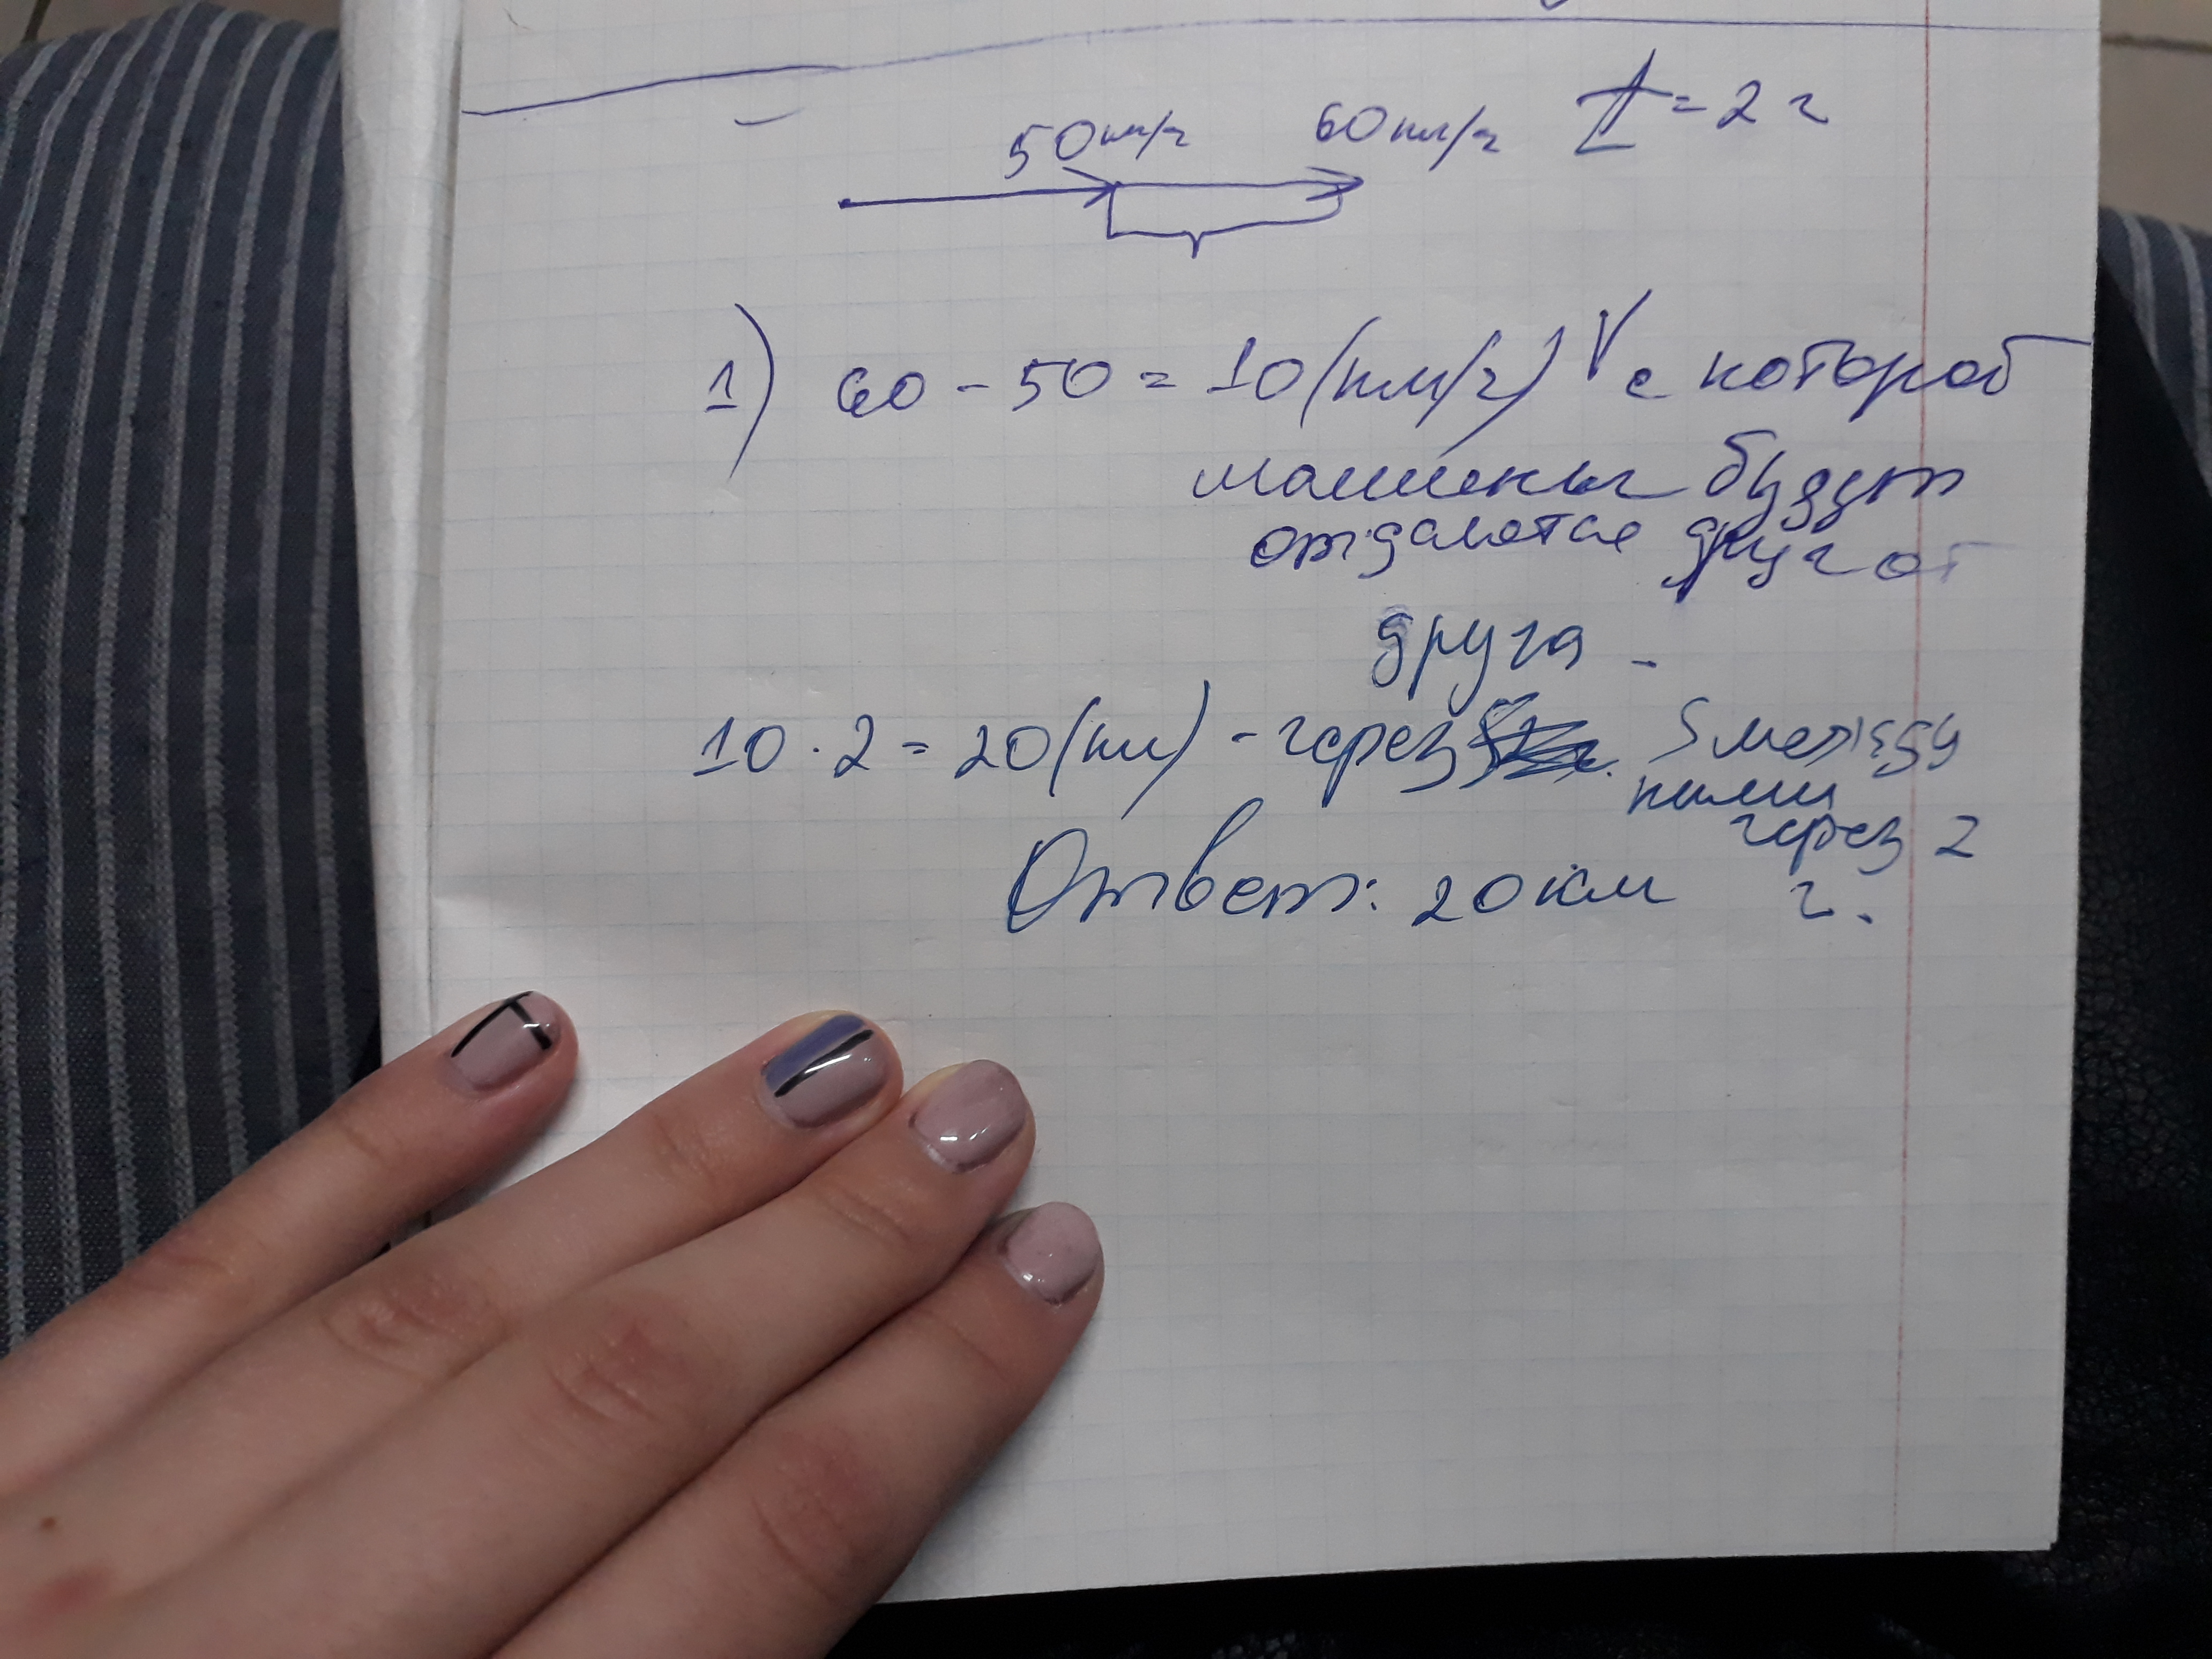 50км/ч 60км/ч t = 2 ч
1) 60 - 50 = 10(км/ч) V с которой
машины будут
отдалятся друг от
друга -
10 · 2 = 20(км) - через S между
ними
через 2
ч.
Ответ: 20 км